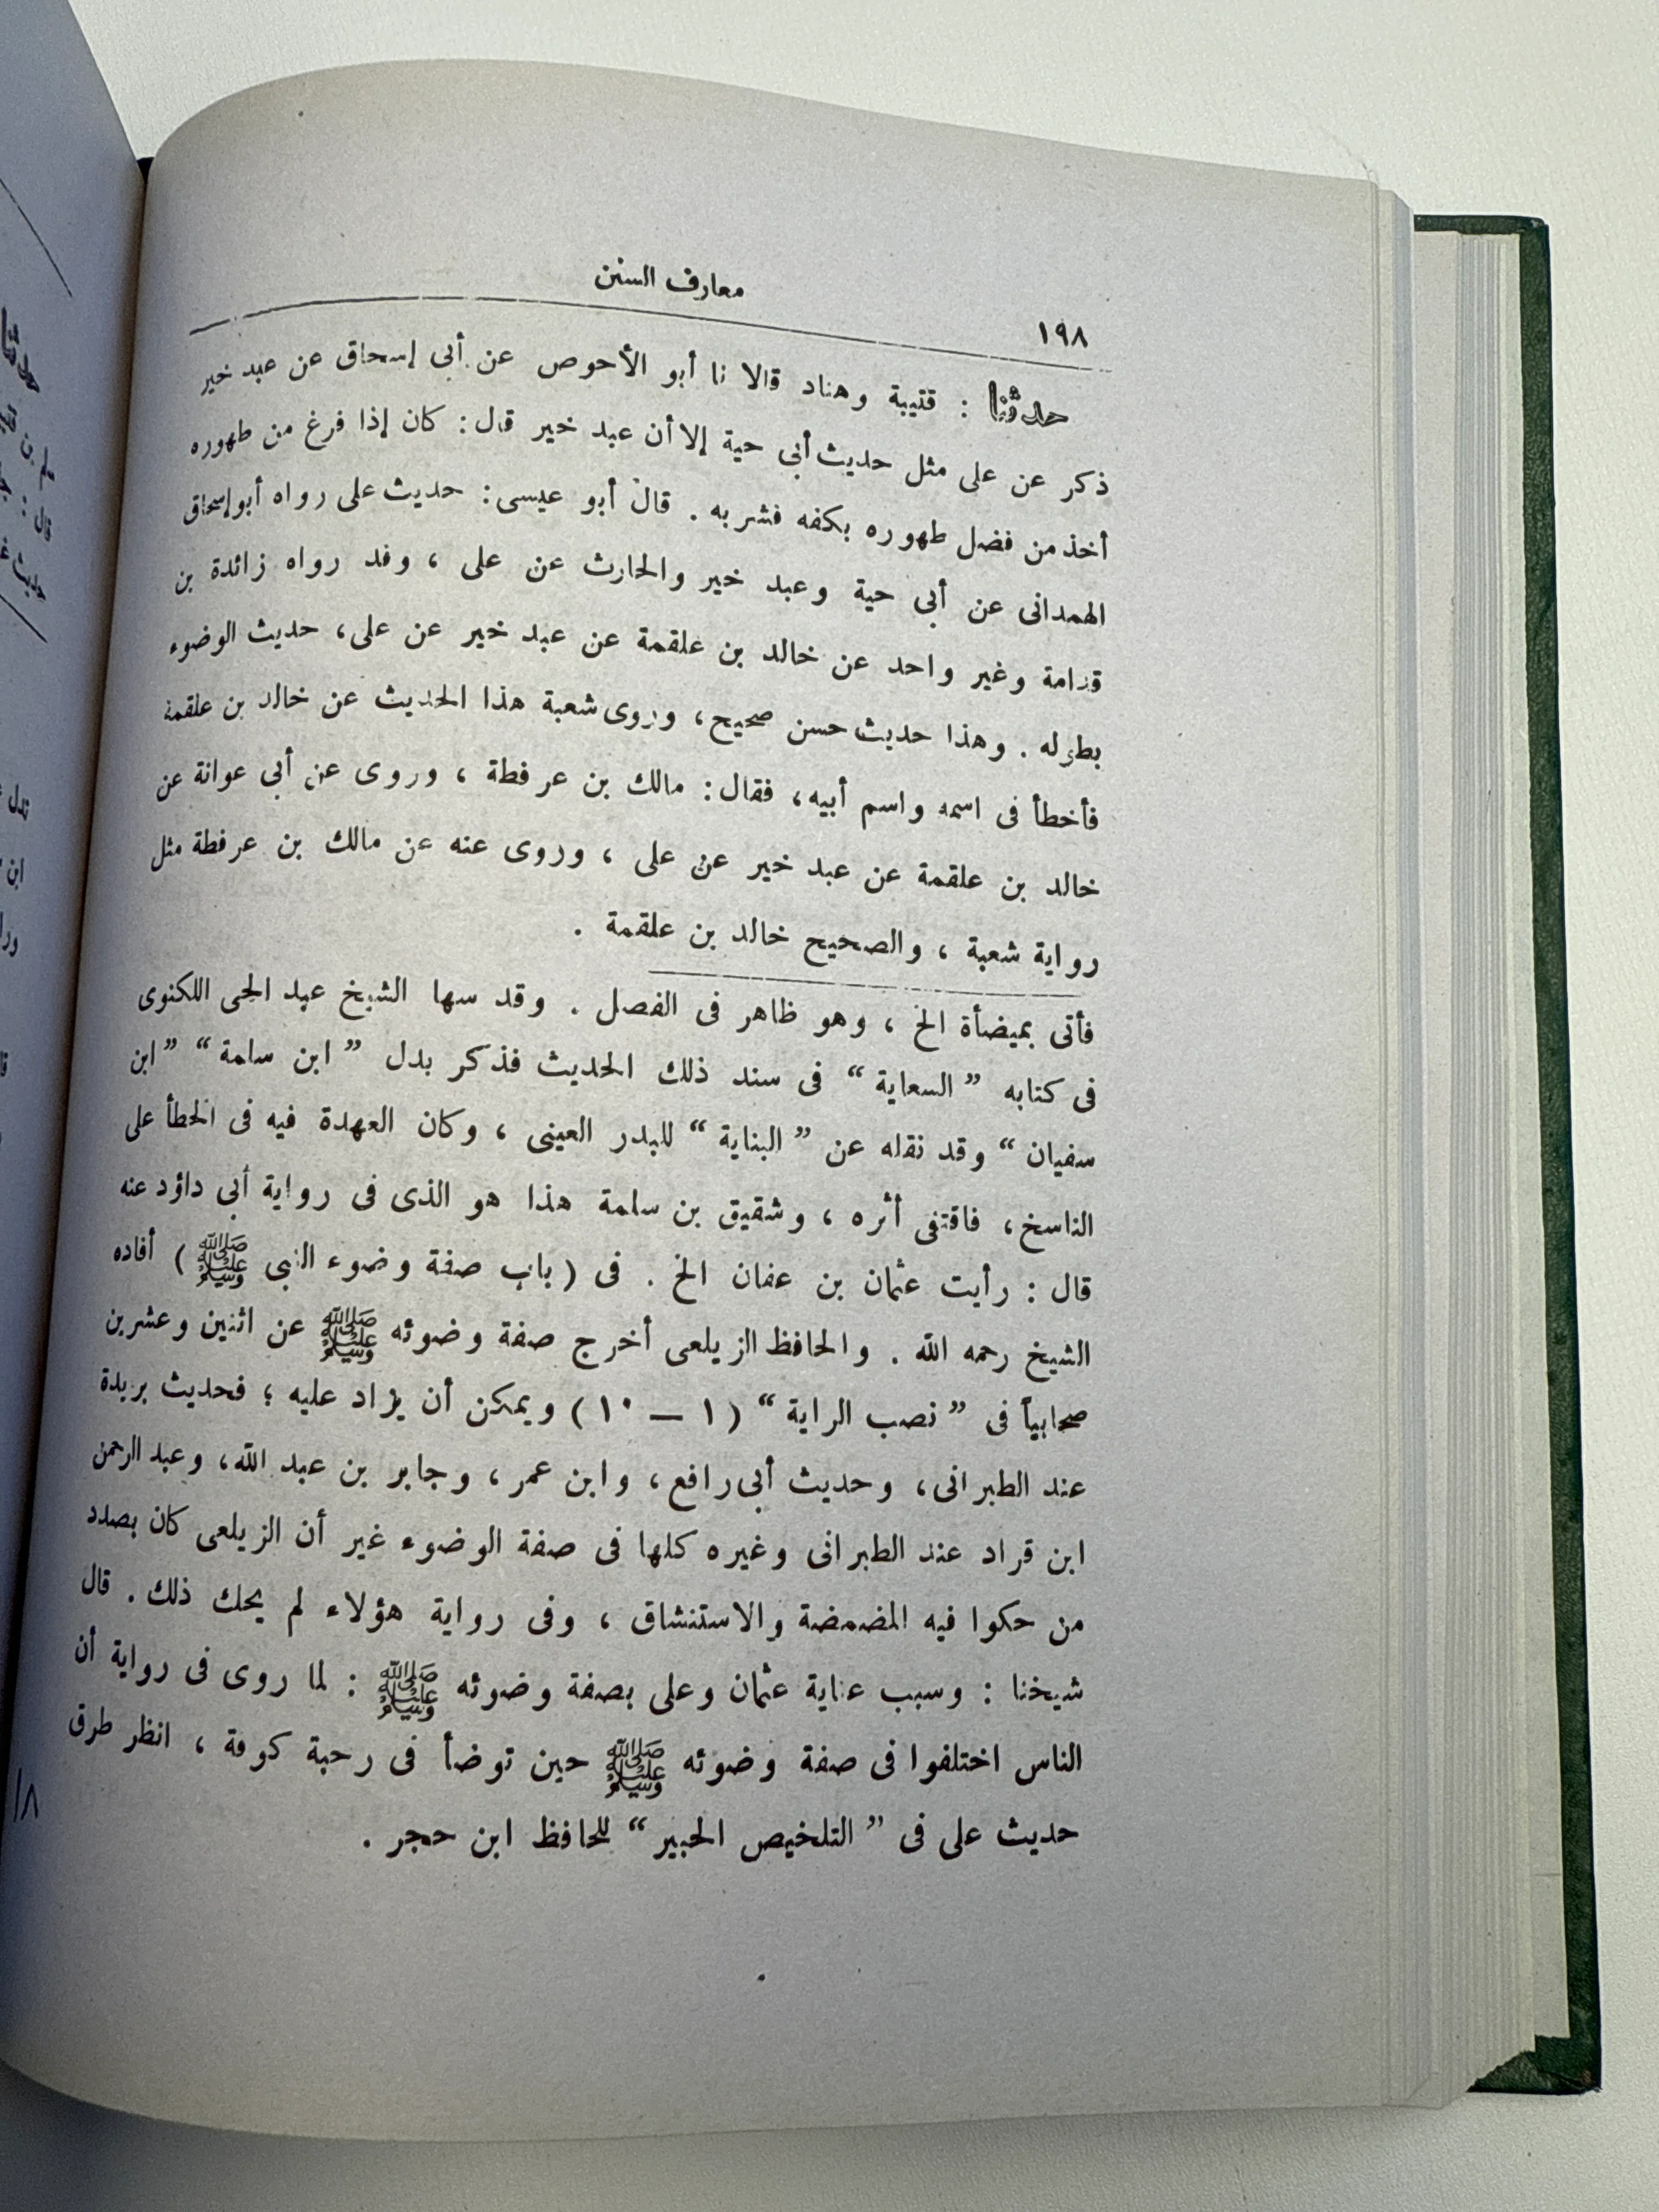 معارف السنن
١٩٨
حدثنا : قتيبة وهناد قالا نا أبو الأحوص عن أبى إسحاق عن عبد خير
ذكر عن على مثل حديث أبى حية إلا أن عبد خير قال : كان إذا فرغ من طهوره
أخذ من فضل طهوره بكفه فشربه . قال أبو عيسى : حديث على رواه أبو إسحاق
الهمدانى عن أبى حية وعبد خير والحارث عن على ، وقد رواه زائدة بن
قدامة وغير واحد عن خالد بن علقمة عن عبد خير عن على، حديث الوضوء
بطوله . وهذا حديث حسن صحيح، وروى شعبة هذا الحديث عن خالد بن علقمة
فأخطأ فى اسمه واسم أبيه، فقال : مالك بن عرفطة ، وروى عن أبى عوانة عن
خالد بن علقمة عن عبد خير عن على ، وروى عنه عن مالك بن عرفطة مثل
رواية شعبة ، والصحيح خالد بن علقمة .
فأتى بميضأة الخ ، وهو ظاهر فى الفصل . وقد سها الشيخ عبد الحى اللكنوى
فى كتابه ” السعاية “ فى سند ذلك الحديث فذكر بدل ” ابن سلمة “ ” ابن
سفيان “ وقد نقله عن ” البناية “ للبدر العينى ، وكان العهدة فيه فى الخطأ على
الناسخ، فاقتفى أثره ، وشقيق بن سلمة هذا هو الذى فى رواية أبى داؤد عنه
قال : رأيت عثمان بن عفان الخ . فى ( باب صفة وضوء النبى ﷺ ) أفاده
الشيخ رحمه الله . والحافظ الزيلعى أخرج صفة وضوئه ﷺ عن اثنين وعشرين
صحابياً فى ” نصب الراية “ ( ١ — ١٠ ) ويمكن أن يزاد عليه ؛ فحديث بريدة
عند الطبرانى، وحديث أبى رافع، وابن عمر ، وجابر بن عبد الله، وعبد الرحمن
ابن قراد عند الطبرانى وغيره كلها فى صفة الوضوء غير أن الزيلعى كان بصدد
من حكوا فيه المضمضة والاستنشاق ، وفى رواية هؤلاء لم يحك ذلك . قال
شيخنا : وسبب عناية عثمان وعلى بصفة وضوئه ﷺ : لما روى فى رواية أن
الناس اختلفوا فى صفة وضوئه ﷺ حين توضأ فى رحبة كوفة ، انظر طرق
حديث على فى ” التلخيص الحبير “ للحافظ ابن حجر .